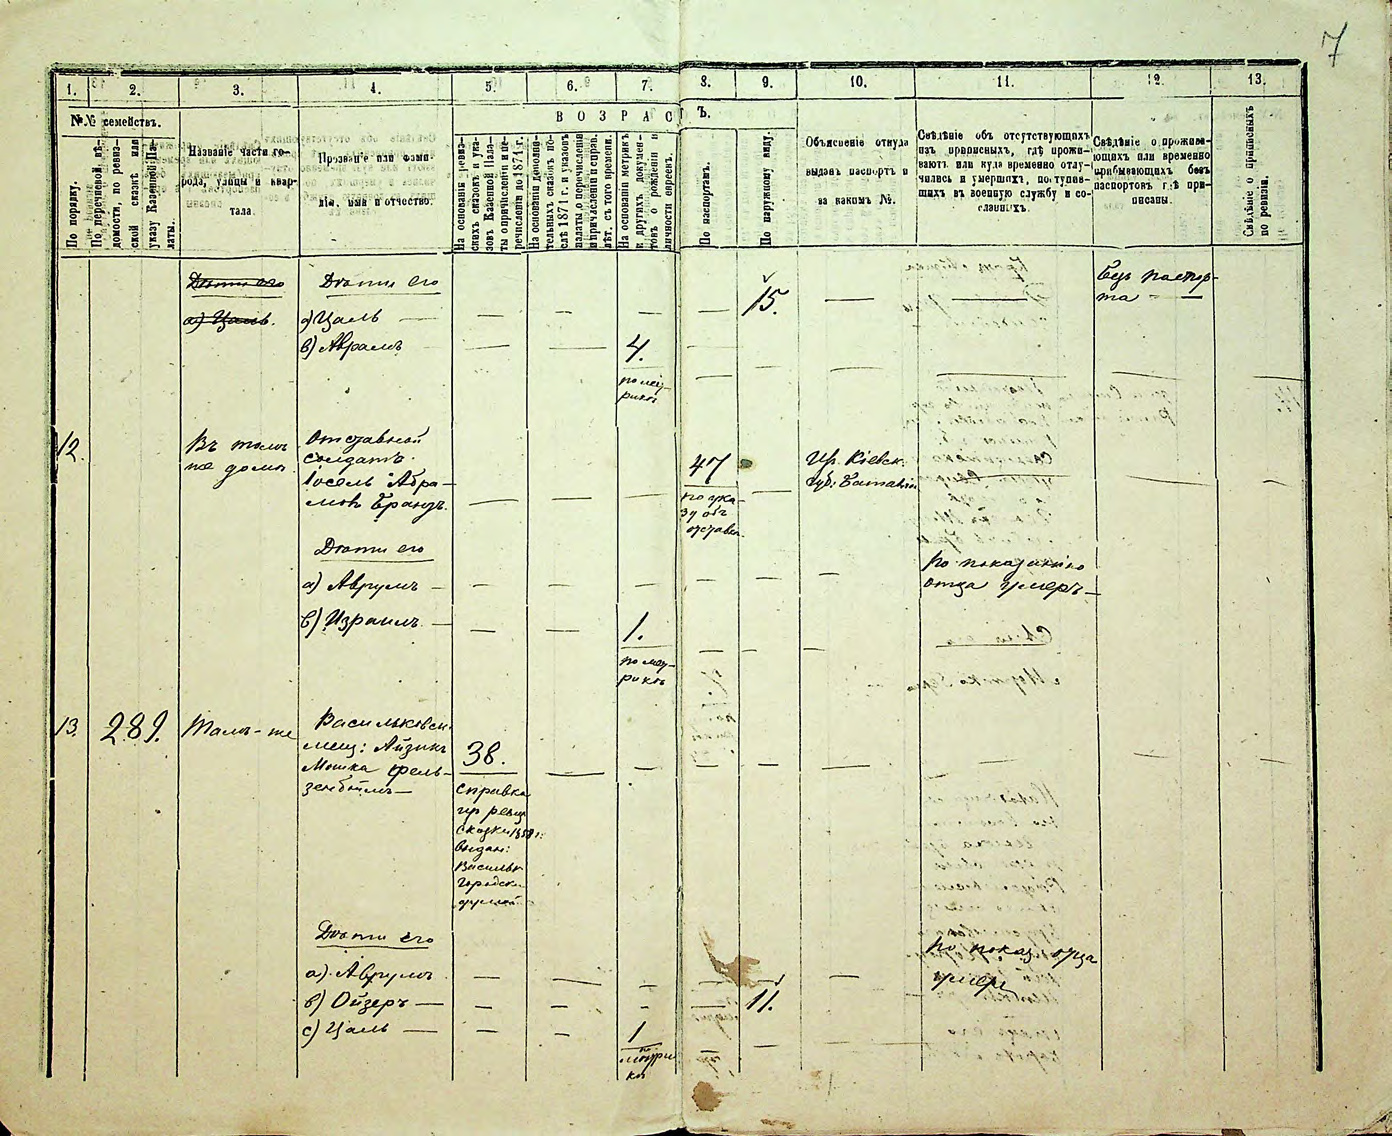 7
1. 2. 3. 4. 5. 6. 7. 8. 9. 10. 11. 12. 13.
№№ семействъ.
ВОЗРАСТЪ.
По порядку.
По перечневой вѣ-
домости, по ревиз-
ской сказкѣ или
указу Казенной Па-
латы.
Названіе части го-
рода, улицы и квар-
тала.
Прозваніе или фами-
лія, имя и отчество.
На основаніи ревиз-
скихъ сказокъ и ука-
зовъ Казенной Пала-
ты о причисленіи и пе-
речисленіи по 1874 г.
На основаніи дополни-
тельныхъ сказокъ по-
слѣ 1874 г. и указовъ
палаты о перечисленіи
и причисленіи и справ.
лѣт. съ того времени.
На основаніи метрикъ
и другихъ докумен-
товъ о рожденіи и
личности евреевъ.
По паспортамъ.
По наружному виду.
Объясненіе откуда
выданъ паспортъ и
за какимъ №.
Свѣдѣніе объ отсутствующихъ
изъ приписныхъ, гдѣ прожи-
ваютъ или куда временно отлу-
чились и умершихъ, поступив-
шихъ въ военную службу и со-
сланныхъ.
Свѣдѣніе о прожива-
ющихъ или временно
прибывающихъ безъ
паспортовъ гдѣ при-
писаны.
Свѣдѣніе о приписныхъ
по ревизіи.
Дѣти его
а) Цаль.
Дѣти его
а) Цаль —
в) Аврамъ
4.
по мет-
рикѣ
15.
Безъ паспор-
та —
12.
Въ томъ
же домѣ
Отставной
солдатъ
Іосель Абра-
мовъ Бранд.
47
по ука-
зу объ
отставк.
Дѣти его
а) Аврумъ —
в) Израиль —
1.
по мет-
рикѣ
По показанію
отца умеръ —
13.
289.
Тамъ-же
Васильковск.
мещ: Айзикъ
Мошка Фель-
38.
справка
сказки 1858 г:
выдан:
Васильк
городск.
думой
Дѣти его
а) Аврумъ
в) Ойзеръ —
с) Цаль —
1
по
метри
кѣ
11.
По показ. отца
умеръ